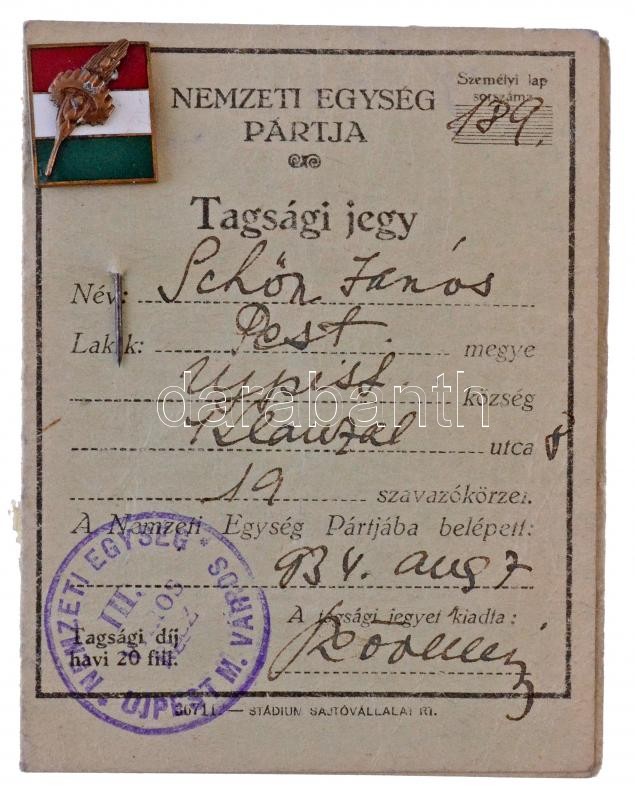 Személyi lap
sorszáma
189.
NEMZETI EGYSÉG
PÁRTJA
Tagsági jegy
Név: Schön János
Lakik: Pest megye
Ujpest község
Klauzál utca 8
19 szavazókörzet.
A Nemzeti Egység Pártjába belépett:
934. aug 7
A tagsági jegyet kiadta:
Tagsági díj
havi 20 fill.
NEMZETI EGYSÉG * UJPEST M. VÁROSI
III.
30711 — STÁDIUM SAJTÓVÁLLALAT RT.
darabanth